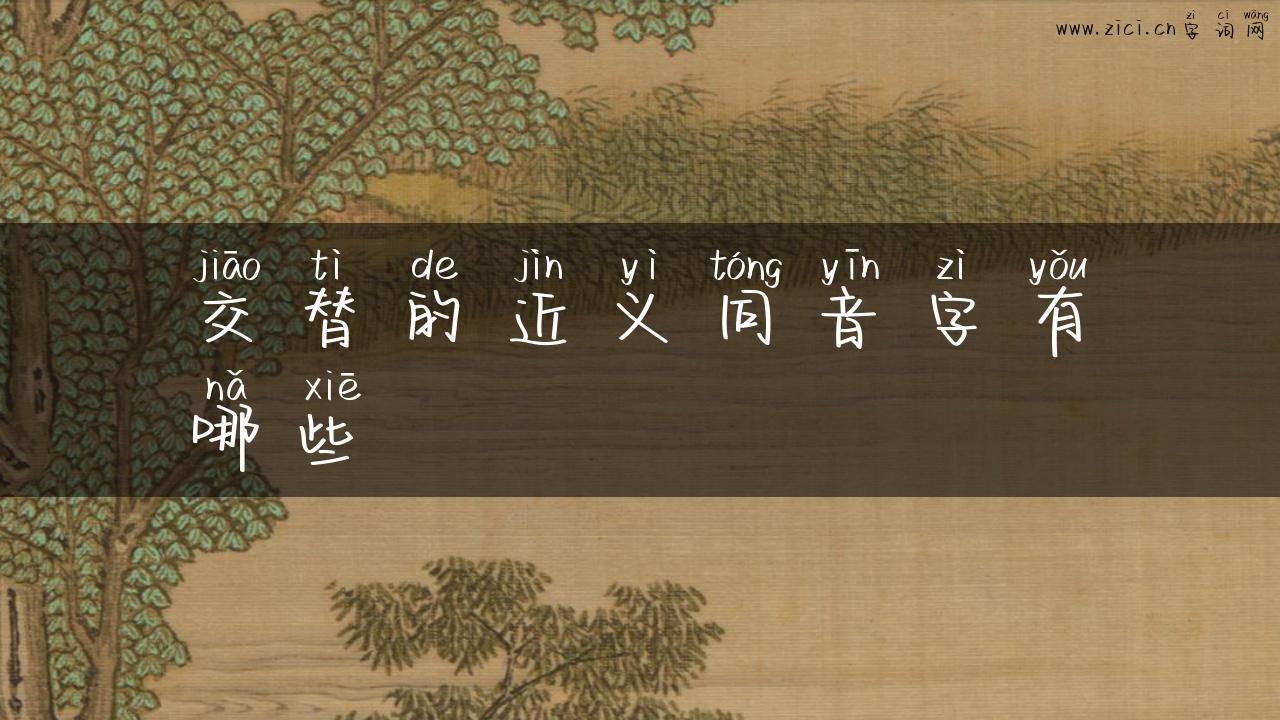 zì cí wǎng
www.zici.cn字词网
jiāo tì de jìn yì tóng yīn zì yǒu
交替的近义同音字有
nǎ xiē
哪些